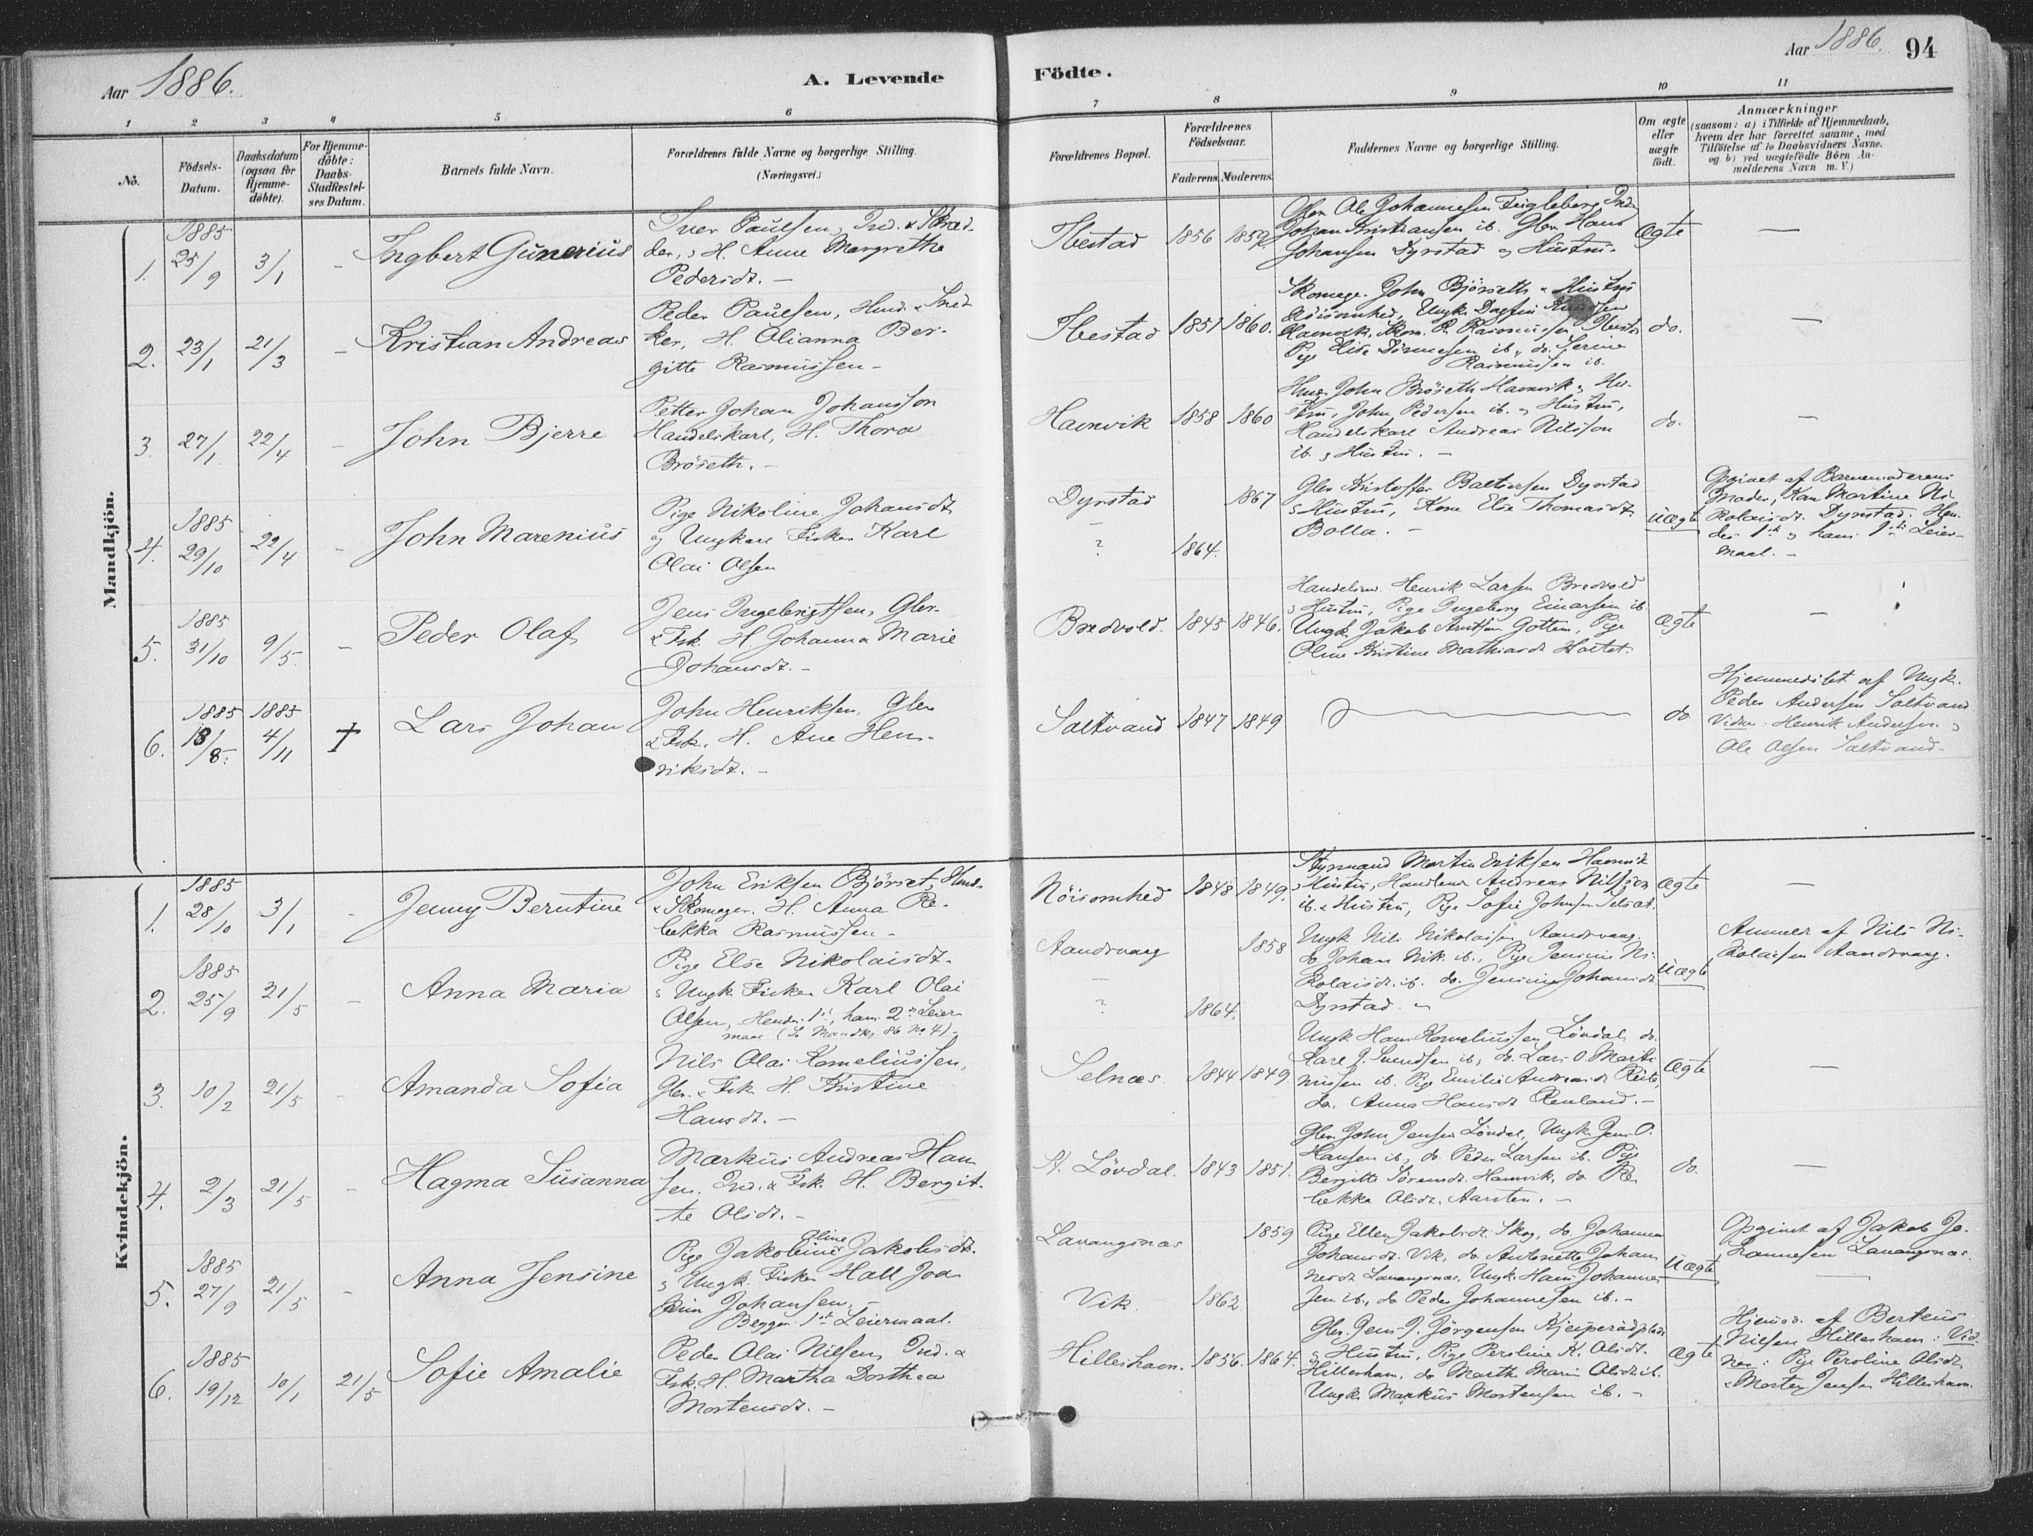 Aar 1886.
A. Levende
Födte.
Aar 1886.
94
1 2 3 4 5 6 7 8 9 10 11
No.
Födsels-
Datum.
Daabsdatum
(ogsaa for
Hjemme-
döbte).
For Hjemme-
döbte:
Daabs-
Stadfæstel-
ses Datum.
Barnets fulde Navn.
Forældrenes fulde Navne og borgerlige Stilling.
(Næringsvei.)
Forældrenes Bopæl.
Forældrenes
Födselsaar.
Faderens. Moderens.
Faddernes Navne og borgerlige Stilling.
Om ægte
eller
uægte
født.
Anmærkninger
(saasom: a) i Tilfælde af Hjemmedaab,
hvem der har forrettet samme, med
Tilföielse af to Daabsvidners Navne.
og b) ved uægtefödte Börn An-
melderens Navn m. V.)
Mandkjön.
1. 1885 25/9 3/1 - Ingbert Gunerius
Iver Paulsen, Ind. & Skræd-
der, & H. Anne Margrethe
Pedersdt. -
Ibestad 1856 1859
Johan Kristiansen ib. Gbr. Hans
Johansen Dyrstad og Hustru.
Ægte -
2. 23/1 21/3 - Kristian Andreas
Peder Paulsen, Hmd. & Sned
ker, H. Olianna Ber-
gitte Rasmussen -
Ibestad 1851 1860.
Skomag. John Bjørseth & Hustru
do. -
3. 27/1 22/4 - John Bjerre
Petter Johan Johansson
Handelskarl, H. Thora
Bröseth. -
Hamnvik 1858 1860
Hmd. John Bröseth Hamnvik & Hu-
stru, John Pedersen ib. & Hustru,
Handelskarl Andreas Nilsson
ib. & Hustru. -
do. -
4. 1885 29/10 22/4 - John Marenius
Pige Nikoline Johansdt.
og Ungkarl Fisker Karl
Olai Olsen
Dyrstad 1867
- ? 1864.
Gbr. Kristoffer Baltsersen Dyrstad
& Hustru, Kone Else Thomasdt.
Bolla. -
Uægte
Opgivet af Barnemoderens
Moder, Kone Martine Ni-
kolaisdt. Dyrstad. Hen-
des 1ste og hans 1ste Leier-
maal. -
5. 1885 31/10 9/5. - Peder Olaf
Jens Ingebrigtsen, Gbr.
& Fsk. H. Johanna Marie
Johansdt. -
Bredvold. 1845 1846.
Handelsm. Henrik Larsen Bredvold
& Hustru, Pige Ingeborg Einarsen ib
Oline Kristine Mathiasdt.
Ægte -
6. 1885 18/8. 1885 4/11 + Lars Johan
John Henriksen, Gbr.
& Fsk. H. Ane Hen-
riksdt. -
Saltvand 1847 1849
do.
Hjemmedöbt af Ungk.
Peder Andersen Saltvand
Vidner: Henrik Andersen &
Ole Olsen Saltvand -
Kvindekjön.
1. 1885 28/10 3/1 - Jenny Berntine
John Eriksen Björset, Hmd.
& Skomager. H. Anna Re-
bekka Rasmussen -
Nöisomhed 1848 1849.
Styrmand Martin Eriksen Hamnvik
& Hustru, Handlende Andreas Nilsson
ib. & Hustru, Pige Sofie Johnsen
Ægte -
2. 1885 25/9 21/5 - Anna Maria
Pige Else Nikolaisdt.
& Ungk. Fisker Karl Olai
Olsen, Hendes 1ste, hans 2det Leier-
maal (Se Mandkj. 86 No 4) -
Aandsvaag 1858
- ? 1864.
Ungk. Nils Nikolaisen Aandsvaag.
do Johan Nik. ib., Pige Jensine Ni-
kolaisdt. ib. do. Jensine Johansdt.
Dyrstad. -
Uægte
Anmeldt af Nils Ni-
kolaisen Aandsvaag.
3. 10/2 21/5 - Amanda Sofia
Nils Olai Korneliussen,
Gbr. & Fsk. H. Kristine
Hansdt. -
Selnæs. 1844 1849
Ungk Hans Korneliussen Lövdal, do.
Karl J. Svendsen ib, do. Lars O. Marti-
nussen ib. Pige Emilie Andreasdt.
do. Anna Hansdt Renland. -
Ægte -
4. 2/3 21/5 - Hagma Susanna
Markus Andreas Han-
sen. Ind. & Fsk. H. Bergit-
te Olsdt. -
St. Lövdal. 1843 1851.
Gbr. John Jensen Lövdal, Ungk Jens O.
Hansen ib, do. Peder Larsen ib. Pige
Bergitte Sörensdt. Hamnvik, do. Re-
bekka Olsdt. Aarsten. -
do. -
5. 1885 27/9 21/5 - Anna Jensine
Pige Jakobine Oline Jakobsdt.
& Ungk. Fisker Hall Joa-
kim Johansen. -
Begges 1ste Leiermaal.
Lavangsnæs 1859
Vik. 1862
Pige Ellen Jakobsdt. Skog, do. Johanna
Johansdt. Vik, do. Antonette Johan-
nesdt. Lavangsnæs, Ungk. Hans Johannes-
sen ib., do Peder Johannesen ib. -
Uægte
Opgivet af Jakob Jo-
hannesen Lavangsnæs.
-
6. 1885 19/12 10/1 21/5 Sofie Amalie
Peder Olai Nilsen, Ind. &
Fsk. H. Martha Dorthea
Mortensdt. -
Hilleshavn. 1856. 1864.
Gbr. Jens J. Jörgensen
& Hustru, Pige Peroline K. Olsdt.
Hilleshavn, do Marth. Marie Olsdt. ib.
Ungk. Markus Mortensen ib. -
Ægte
Hjemd. af Berteus
Nilsen Hilleshavn: Vid-
ner: Pige Peroline Olsdt
& Morten Jensen Hilleshavn.